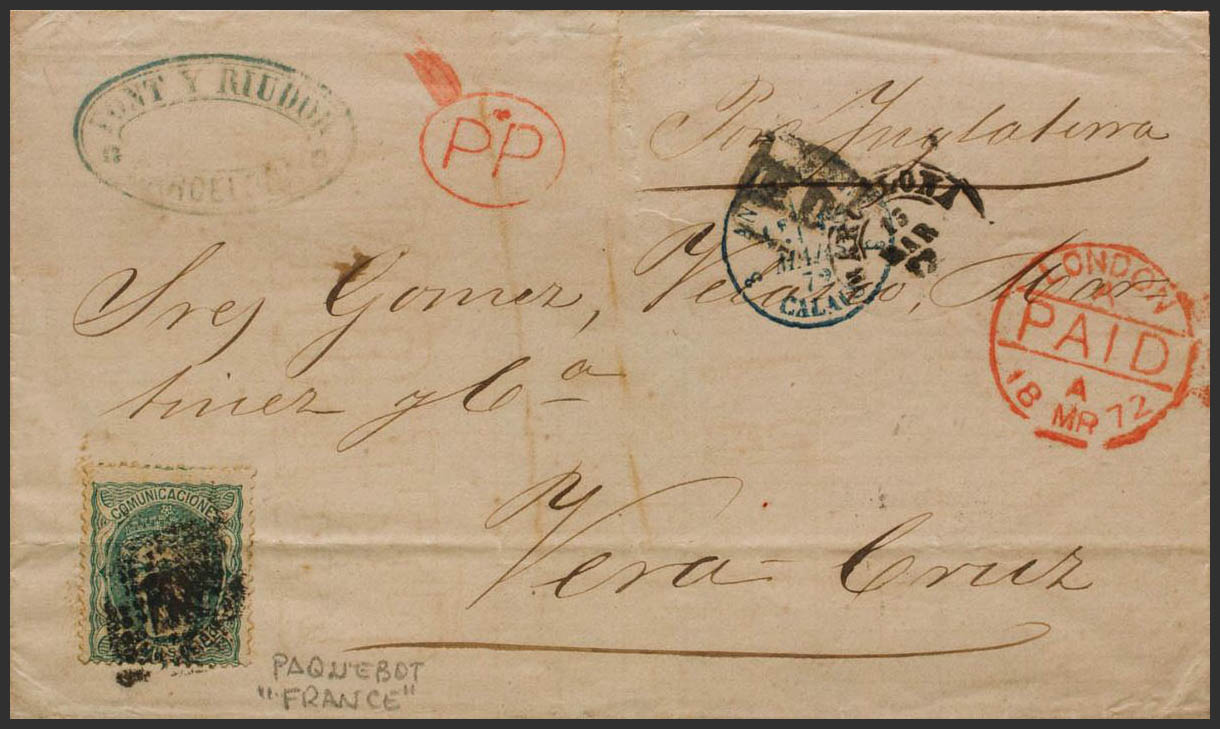 FONT Y RIUDOR
BARCELONA
PP
Por Inglaterra
BARCELONA
15
MAR
MARS
72
CALAIS
LONDON
A
PAID
A
18 MR 72
Sres Gomez, Velasco, Mar-
tinez y Cª
Vera-Cruz
COMUNICACIONES
PAQUEBOT
"FRANCE"